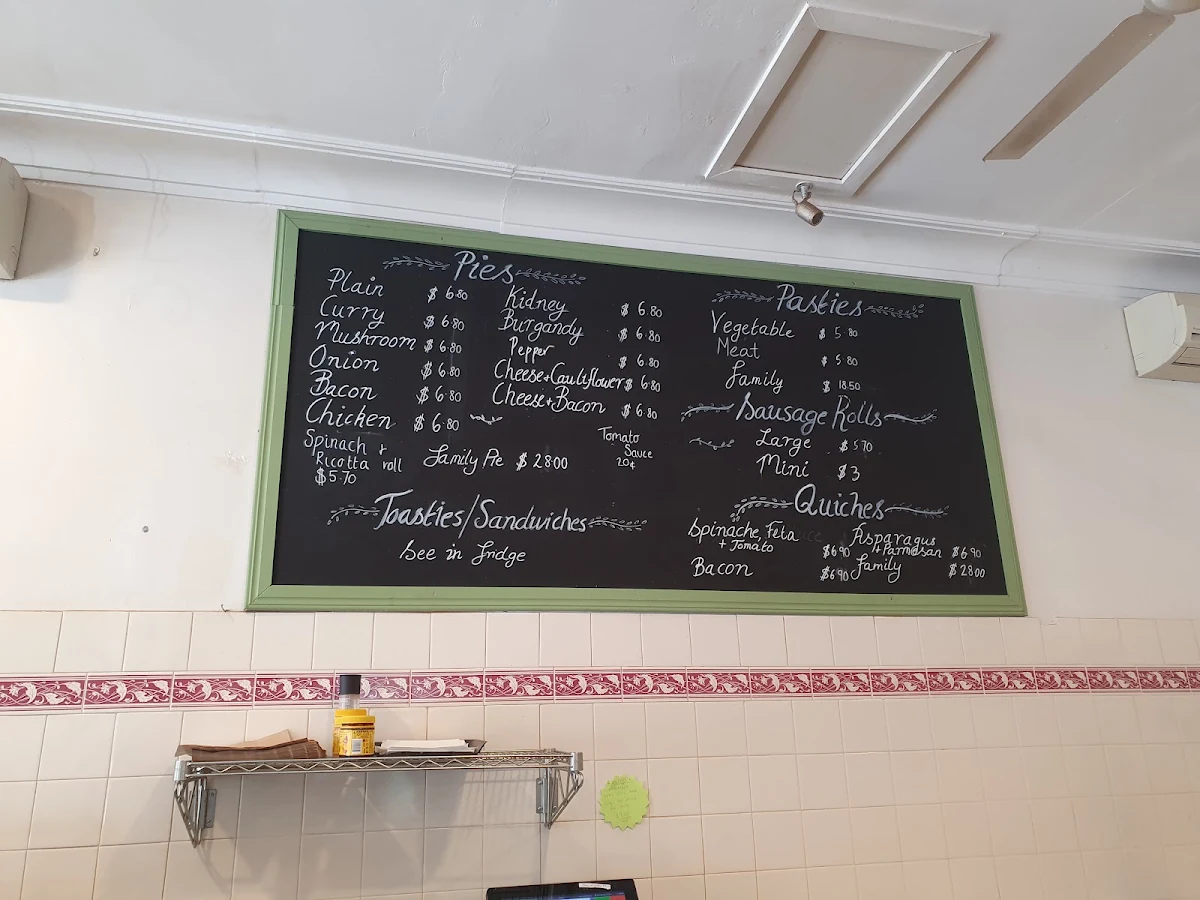 Pies
Plain $ 6.80
Curry $ 6.80
Mushroom $ 6.80
Onion $ 6.80
Bacon $ 6.80
Chicken $ 6.80
Spinach +
Ricotta roll
$5.70
Kidney $ 6.80
Burgandy $ 6.80
Pepper $ 6.80
Cheese+Cauliflower $ 6.80
Cheese+Bacon $ 6.80
Family Pie $ 28.00
Tomato
Sauce
20¢
Toasties/Sandwiches
See in Fridge
Pasties
Vegetable $ 5.80
Meat $ 5.80
Family $ 18.50
Sausage Rolls
Large $ 5.70
Mini $3
Quiches
Spinache, Feta
+ Tomato $6.90
Bacon $6.90
Asparagus
+Parmesan $6.90
Family $ 28.00